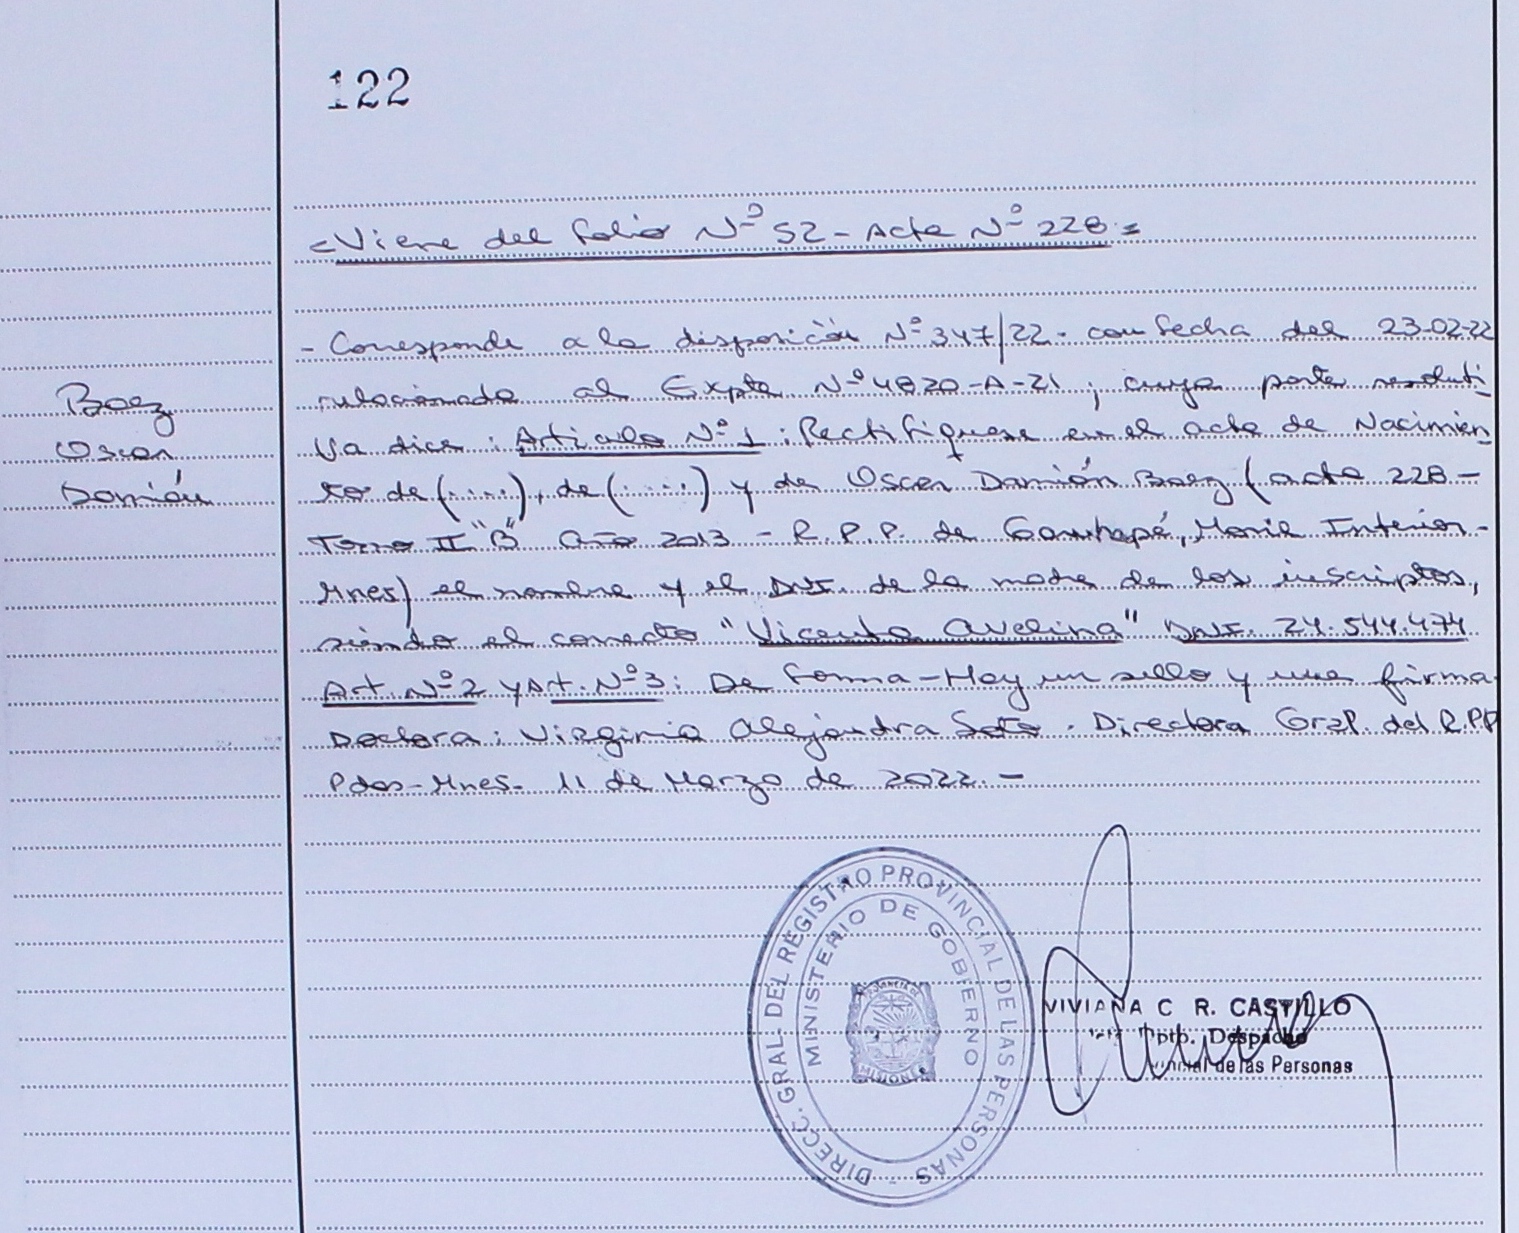 122
<Viene del folio Nº 52 - Acta Nº 228:=
- Corresponde a la disposición Nº 347/22 - con fecha del 23-02-22
relacionado al Expte Nº 4820-A-21, cuya parte resoluti
Baez
Oscar
Damián
va dice: Articulo Nº 1: Rectifiquese en el acta de Nacimien
to de (.....), de (.....) y de Oscar Damián Baez (acta 228 -
Tomo II "B" año 2013 - R.P.P. de Garuhapé, Interior -
Mnes) el nombre y el DNI. de la madre de los inscriptos,
siendo el correcto "Vicenta Avelina" DNI. 24.544.474
Art. Nº 2 y Art. Nº 3: De forma - Hay un sello y una firma
Doctora: Virginia Alejandra Soto. Directora Gral. del R.P.P
Pdas - Mnes - 11 de Marzo de 2022. -
DIRECC. GRAL. DEL REGISTRO PROVINCIAL DE LAS PERSONAS -
MINISTERIO DE GOBIERNO
MISIONES
VIVIANA C R. CASTILLO
Dpto. Despacho
de las Personas